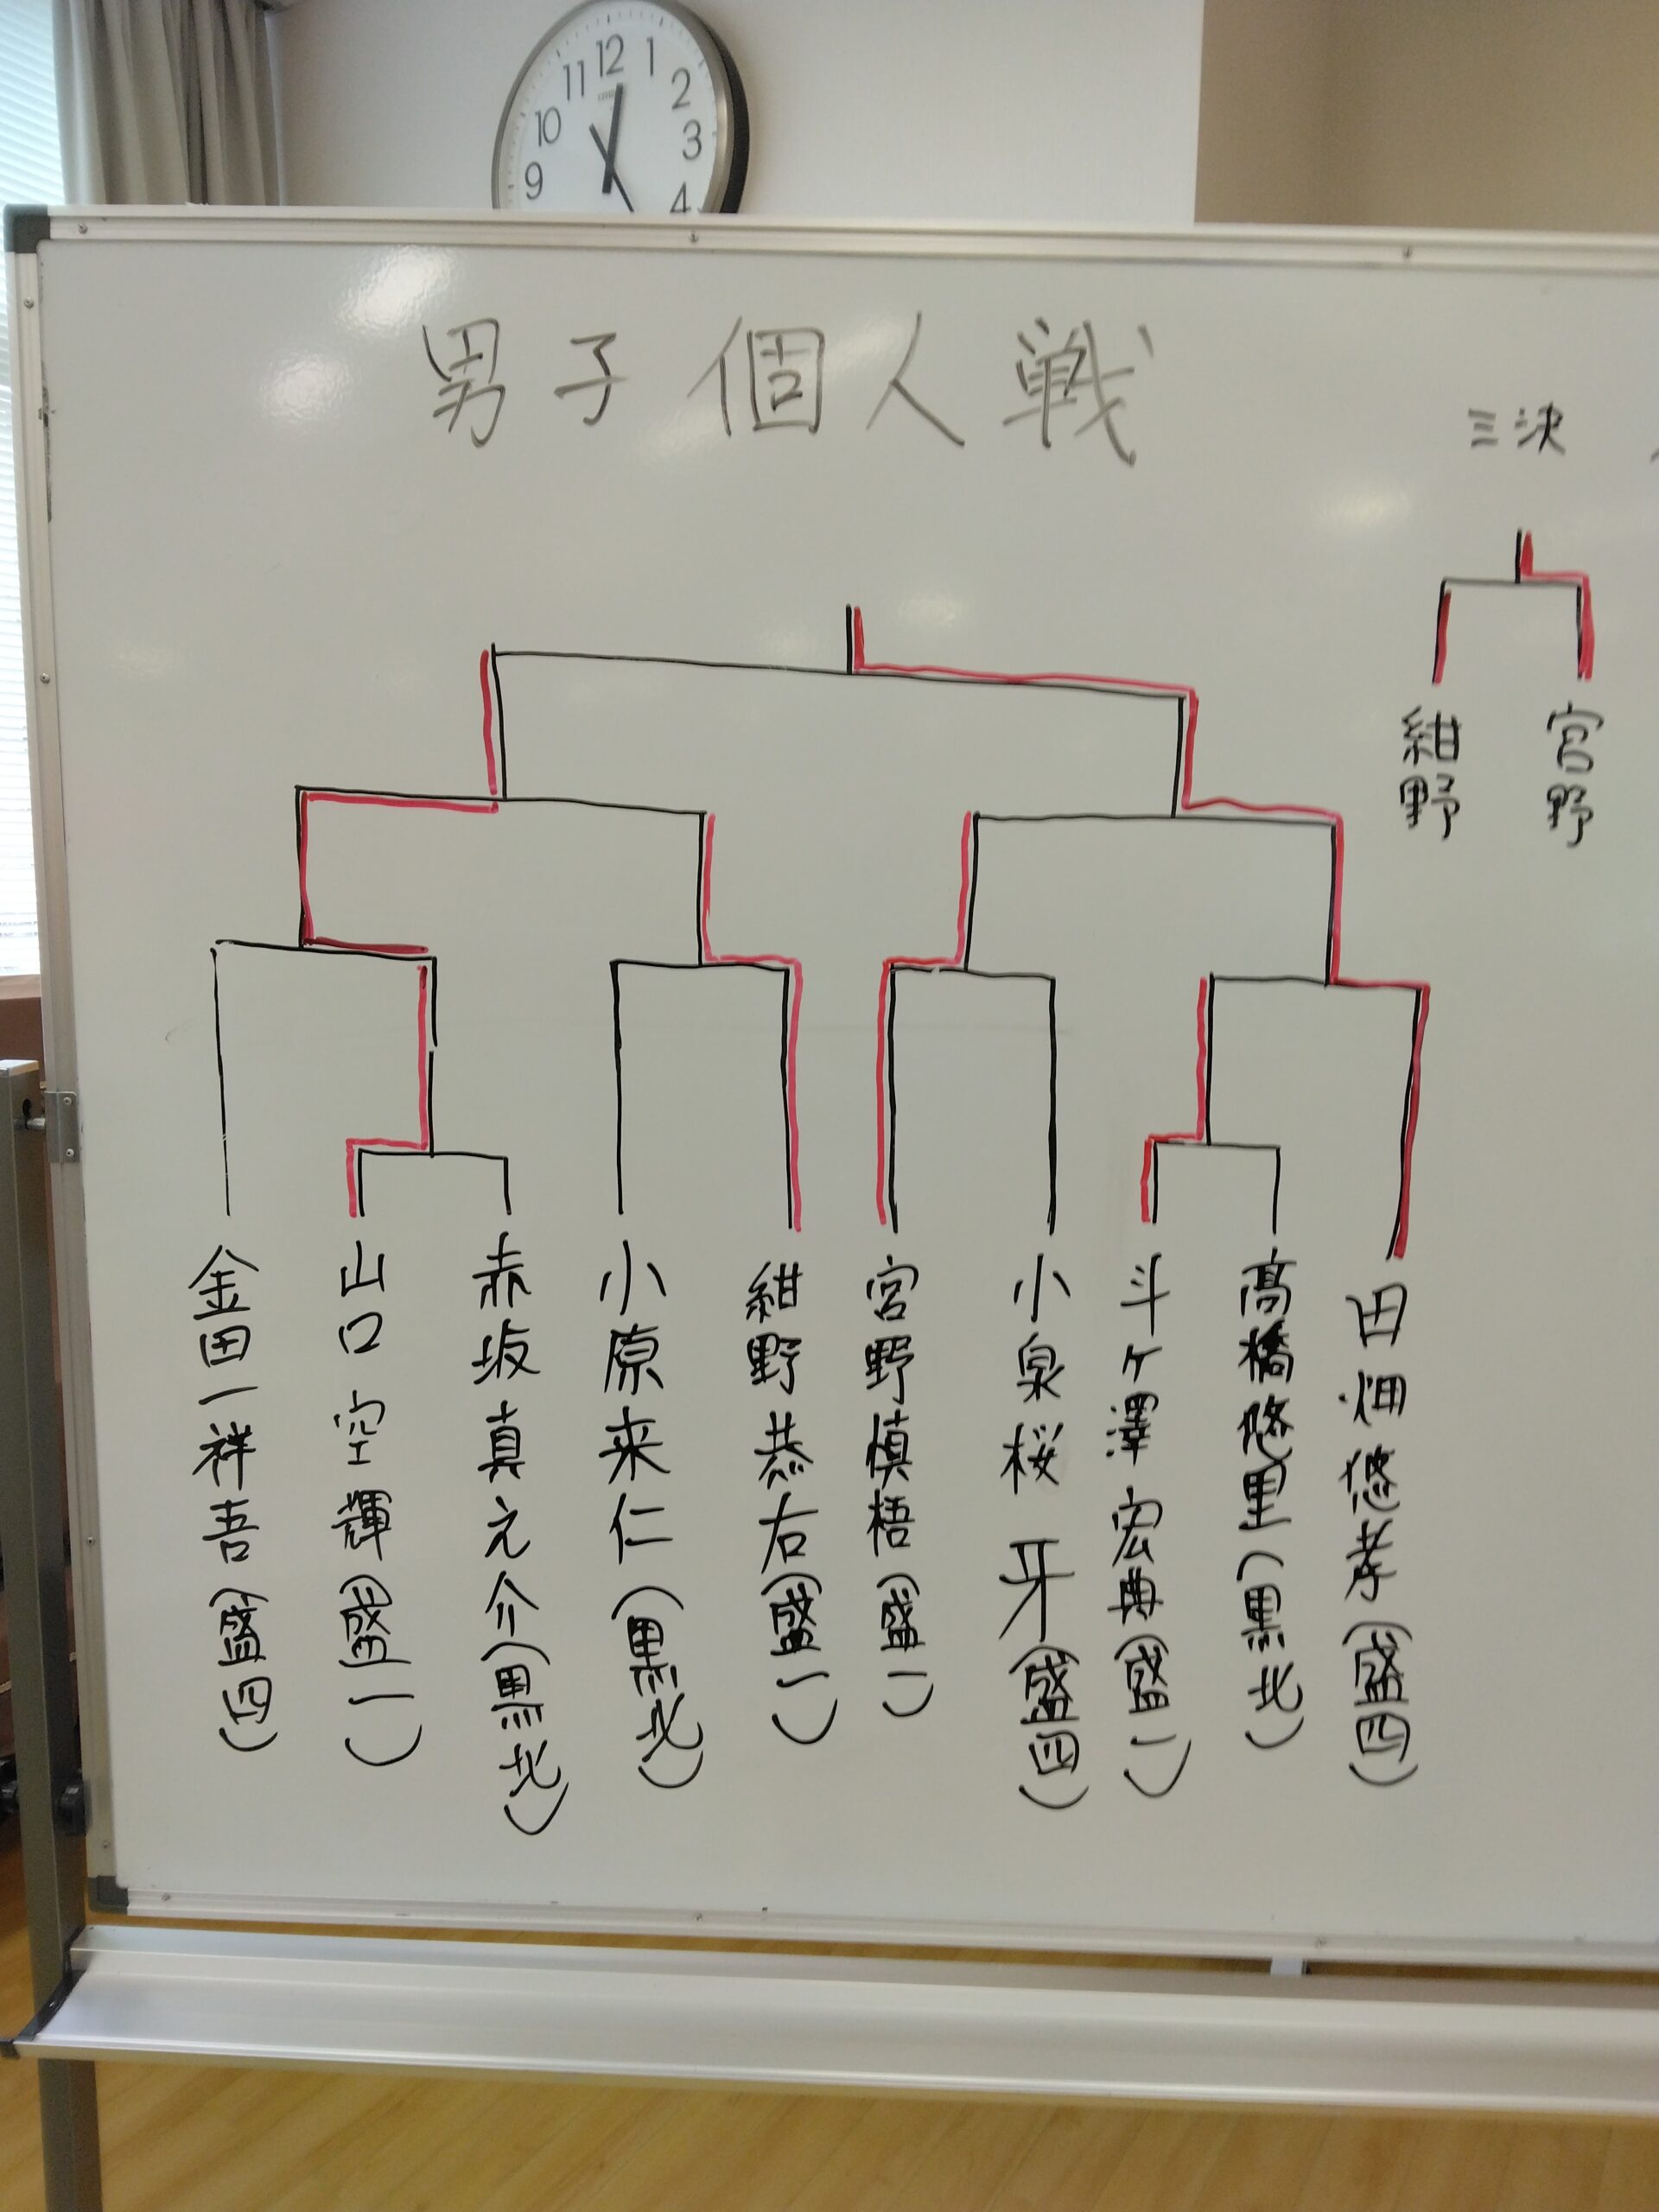 12
1
11
2
10
3
9
4
男子個人戦
三決
紺野
宮野
金田一祥吾(盛四)
山口空輝(盛一)
赤坂真之介(黒北)
小原来仁(黒北)
紺野恭右(盛一)
宮野慎梧(盛一)
小泉桜牙(盛四)
斗ヶ澤宏典(盛一)
髙橋悠里(黒北)
田畑悠孝(盛四)